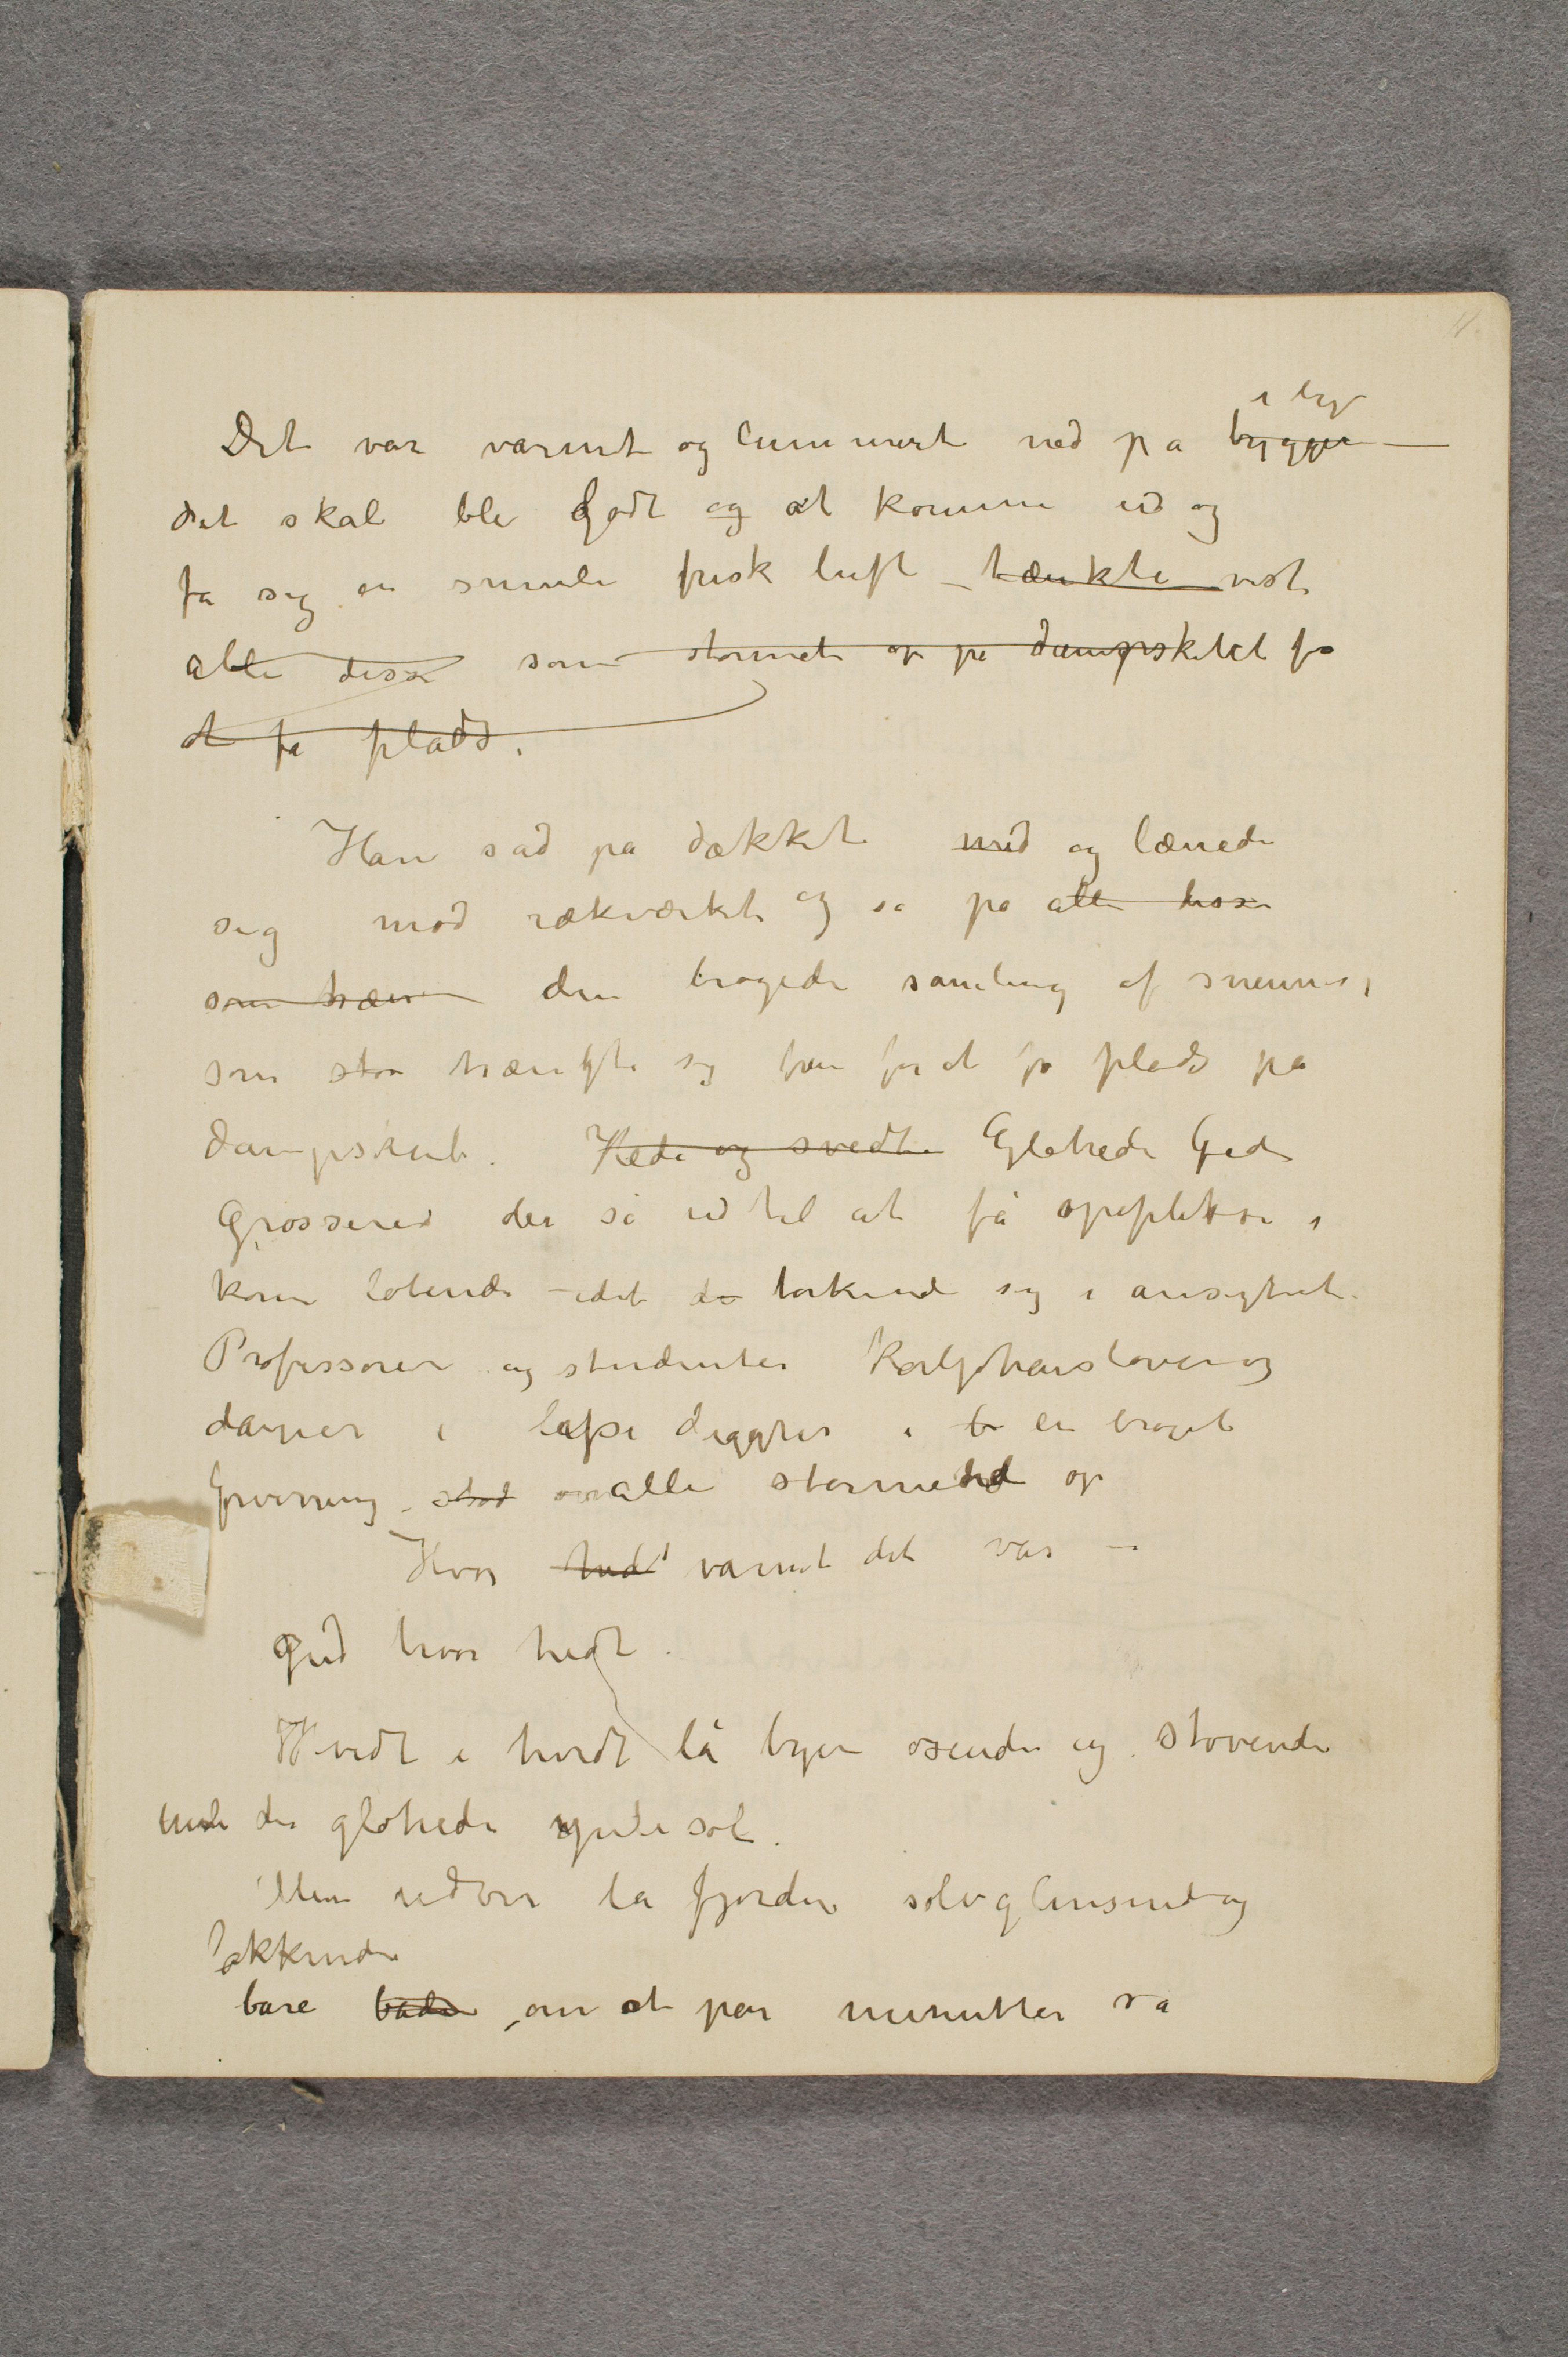 i by
Det var varmt og lummert ned på bryggen —
det skal ble godt og at komme ud og
få sig en smule frisk luft – tænkte vist
alle disse som stormet op på dampskibet for
at få plads.
Han sad på dækket med og lænede
sig mod rækværket og så på alle disse
som træn den brogede samling af
som stor trængte sig frem for at få plads på
dampskibet. Hede og svedte Glohede fede
Grosserer der så ud til at få apoplektri
kom løbende – idet de tørkende sig i ansigtet.
Professorer og studenter Karljohansløver og
damer i lyse dragter i br en broget
forvirring – stod alle stormend op
Hvor hedt varmt det var –
Gud hvor hedt.
Hvidt i hvidt lå byen osende og støvende
under den glohede sol.
Men udover lå fjorden sølvglinsende og
lokkende
bare båden, om et par minutter så